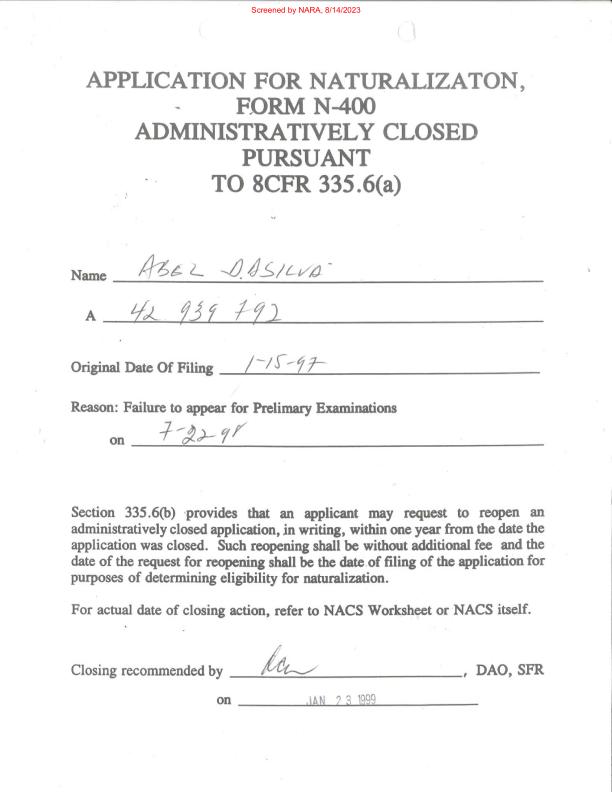 Screened by NARA, 8/14/2023
APPLICATION FOR NATURALIZATON,
FORM N-400
ADMINISTRATIVELY CLOSED
PURSUANT
TO 8CFR 335.6(a)
Name ABEL D. DSILVA
A 42 939 792
Original Date Of Filing 1-15-97
Reason: Failure to appear for Prelimary Examinations
on 7-22-98
Section 335.6(b) provides that an applicant may request to reopen an
administratively closed application, in writing, within one year from the date the
application was closed. Such reopening shall be without additional fee and the
date of the request for reopening shall be the date of filing of the application for
purposes of determining eligibility for naturalization.
For actual date of closing action, refer to NACS Worksheet or NACS itself.
Closing recommended by , DAO, SFR
on JAN 23 1999